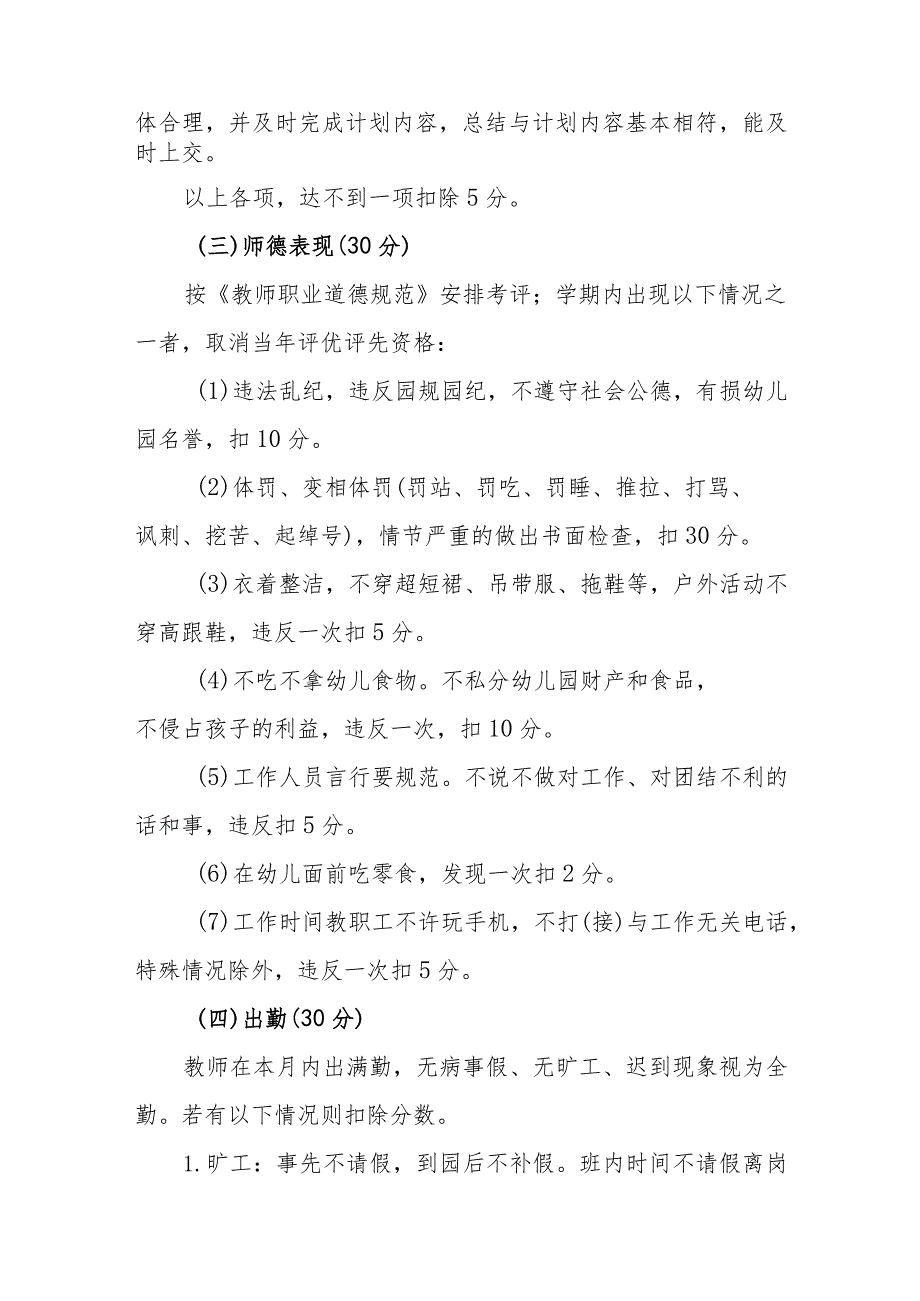 体合理，并及时完成计划内容，总结与计划内容基本相符，能及
时上交。
以上各项，达不到一项扣除5分。
(三)师德表现(30分)
按《教师职业道德规范》安排考评；学期内出现以下情况之
一者，取消当年评优评先资格：
(1)违法乱纪，违反园规园纪，不遵守社会公德，有损幼儿
园名誉，扣10分。
(2)体罚、变相体罚(罚站、罚吃、罚睡、推拉、打骂、
讽刺、挖苦、起绰号)，情节严重的做出书面检查，扣30分。
(3)衣着整洁，不穿超短裙、吊带服、拖鞋等，户外活动不
穿高跟鞋，违反一次扣5分。
(4)不吃不拿幼儿食物。不私分幼儿园财产和食品，
不侵占孩子的利益，违反一次，扣10分。
(5)工作人员言行要规范。不说不做对工作、对团结不利的
话和事，违反扣5分。
(6)在幼儿面前吃零食，发现一次扣2分。
(7)工作时间教职工不许玩手机，不打(接)与工作无关电话，
特殊情况除外，违反一次扣5分。
(四)出勤(30分)
教师在本月内出满勤，无病事假、无旷工、迟到现象视为全
勤。若有以下情况则扣除分数。
1.旷工：事先不请假，到园后不补假。班内时间不请假离岗